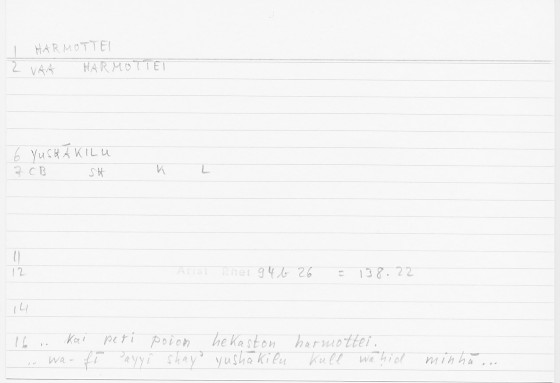 1 HARMOTTEI
2 VAA HARMOTTEI
6 YUSHĀKILU
7 CB SH K L
11
12 Arist. Rhet 94b 26 = 138.22
14
16 .. kai peri poion hekaston harmottei.
.. wa-fī 'ayyi shay' yushākilu kull wāḥid minhā...